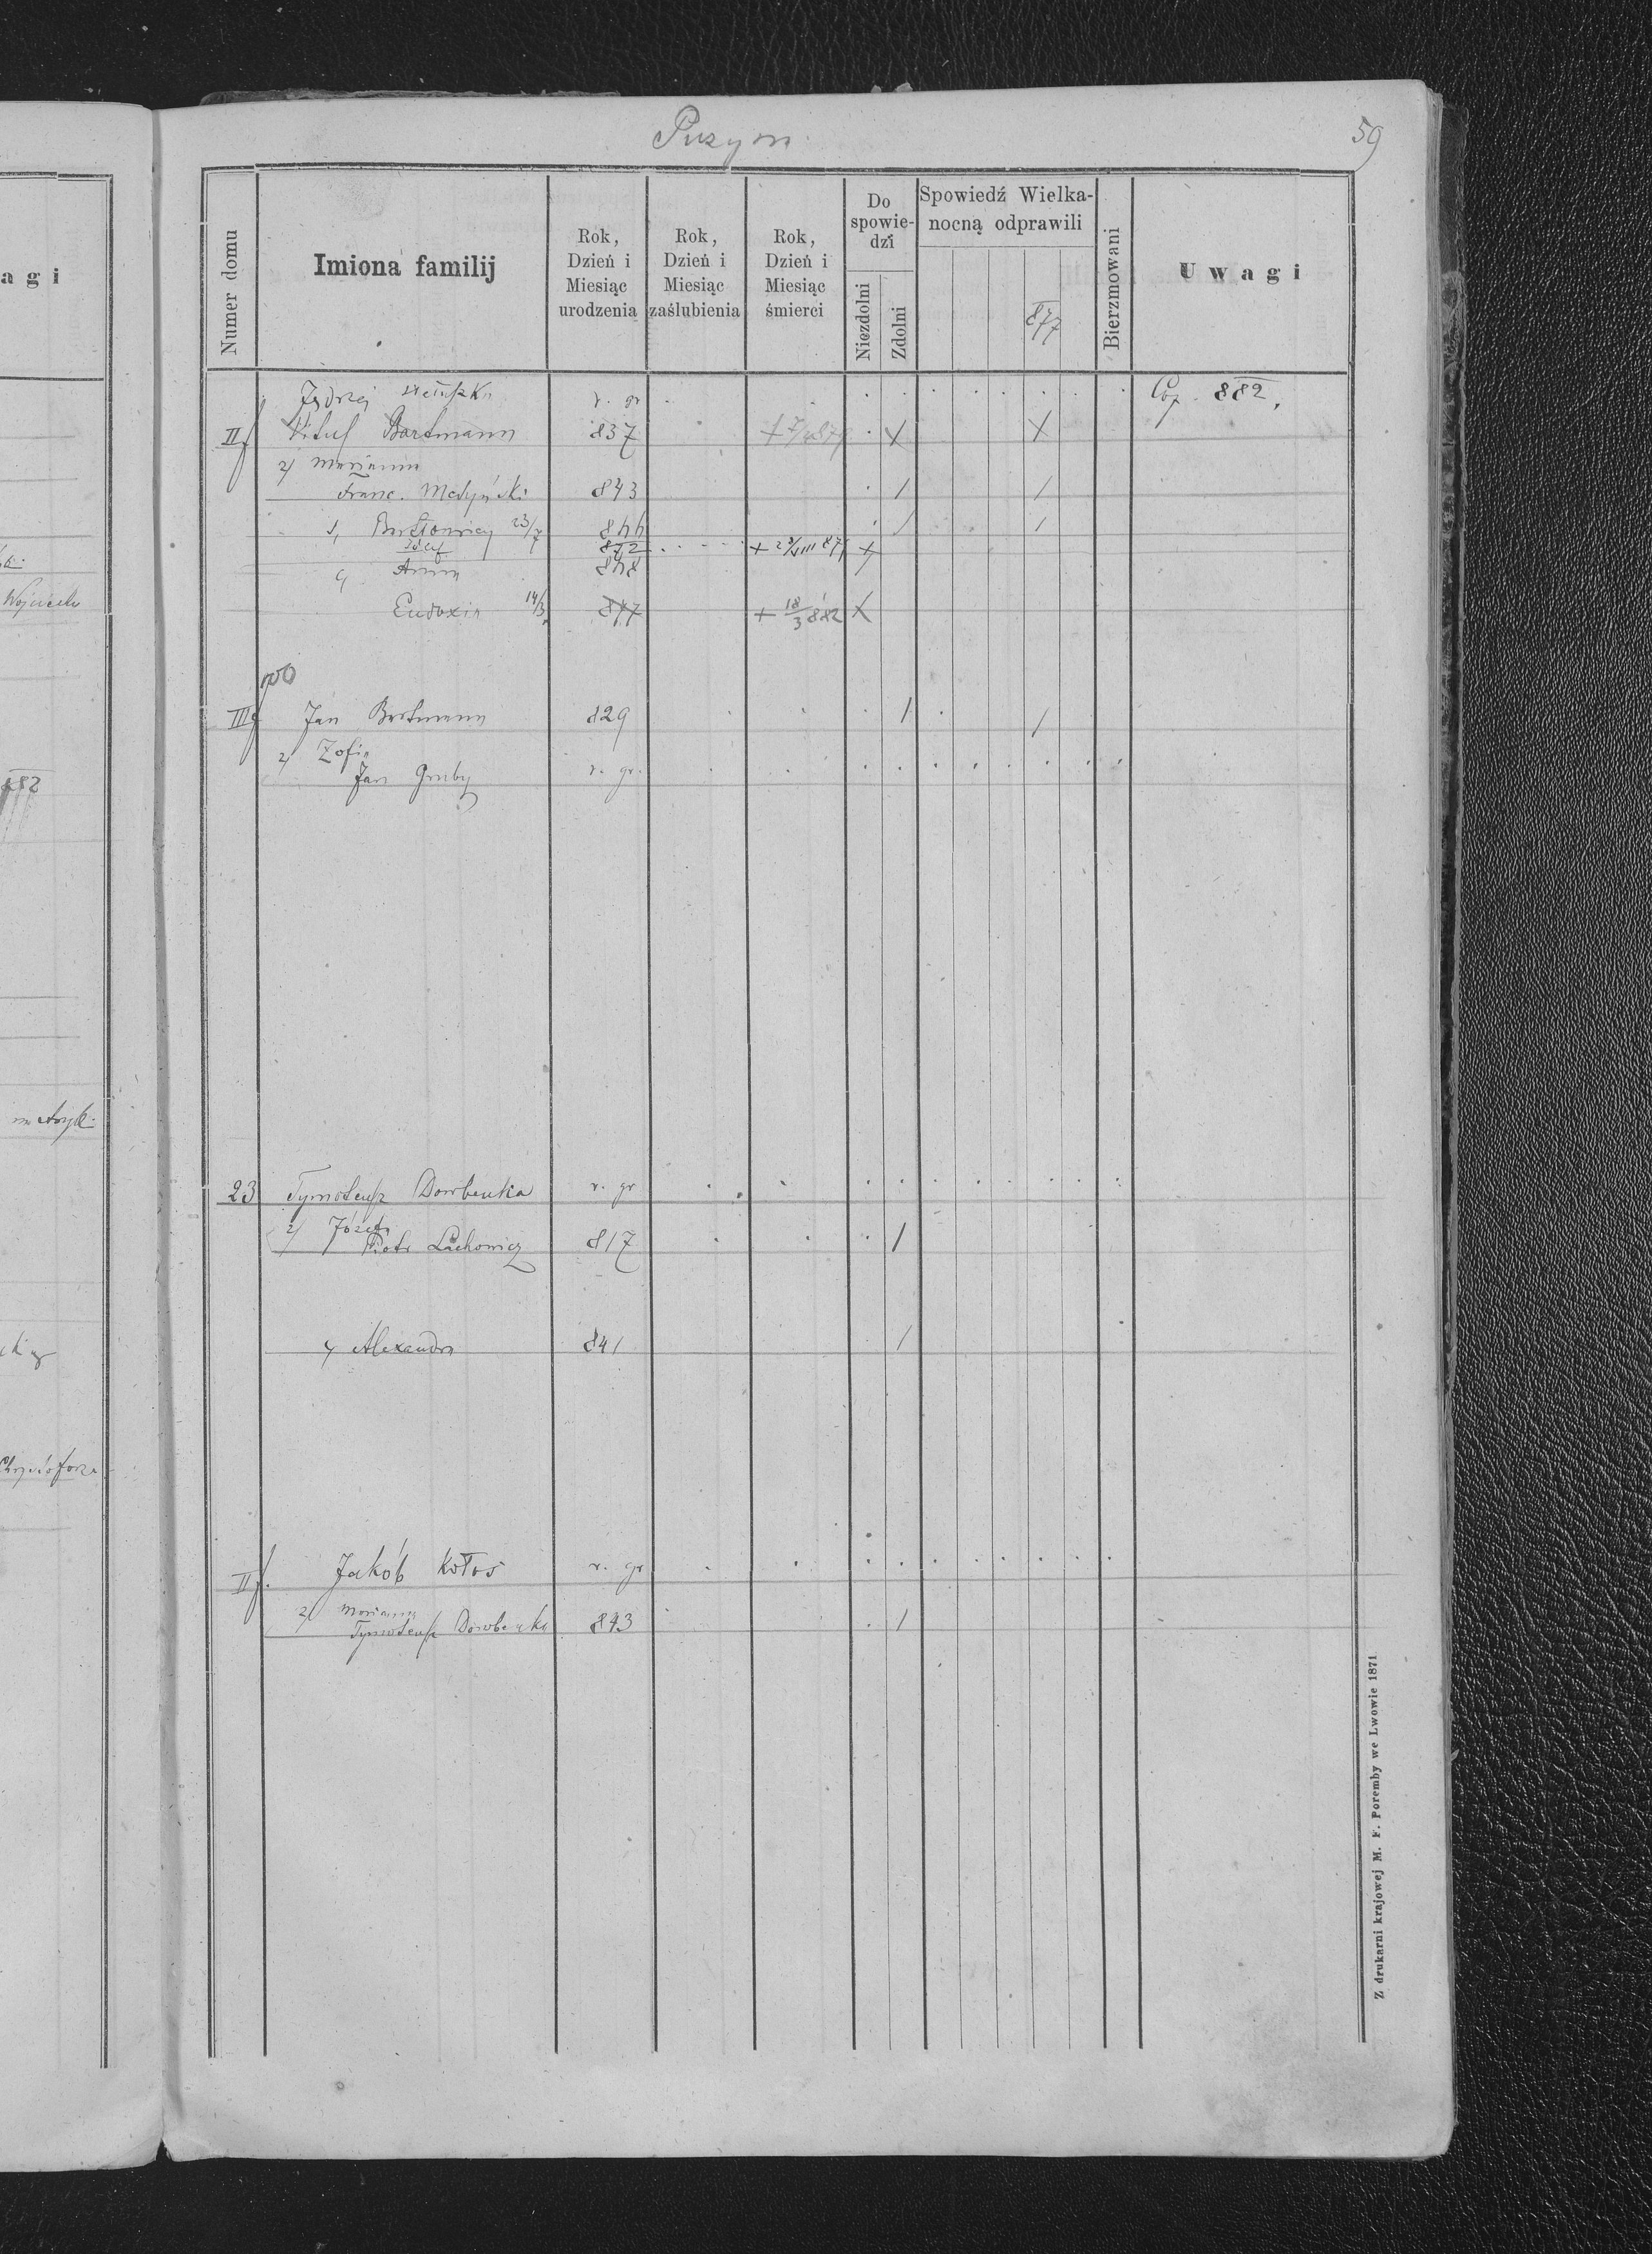 agi
Wojciech
882
Puzyn
59
Numer domu
Imiona familij
Rok, Dzień i Miesiąc urodzenia
Rok, Dzień i Miesiąc zaślubienia
Rok, Dzień i Miesiąc śmierci
Do spowiedzi
Niezdolni
Zdolni
Spowiedź Wielkanocną odprawili
877
Bierzmowani
Uwagi
Jędrzej r. gr Cop. 882.
II f Bartmann 837 X X
2) Marianna
Franc. 843 / /
23/7 844 / /
Józef 872 + 879 +
Anna 848
Eudoxia 14/3 877 + 18/3 882 X
III f Jan Bartmann 829 / /
2) Zofia
Jan Gruby r. gr.
23 Tymoteusz Dowbenka r. gr
2) Józefa
Piotr Lachowicz 817 /
Alexandra 841 /
II f. Jakób Kołos r. gr
2) Marianna
Tymoteusz Dowbenka 843 /
Z drukarni krajowej M. F. Poremby we Lwowie 1871